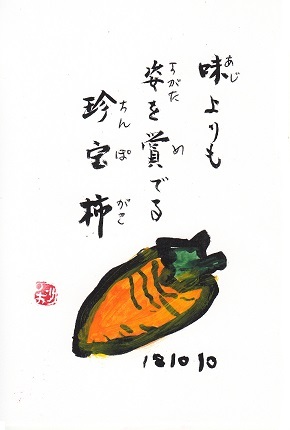 味よりも
あじ
姿を賞でる
すがた
め
珍宝柿
ちんぽ
がき
181010